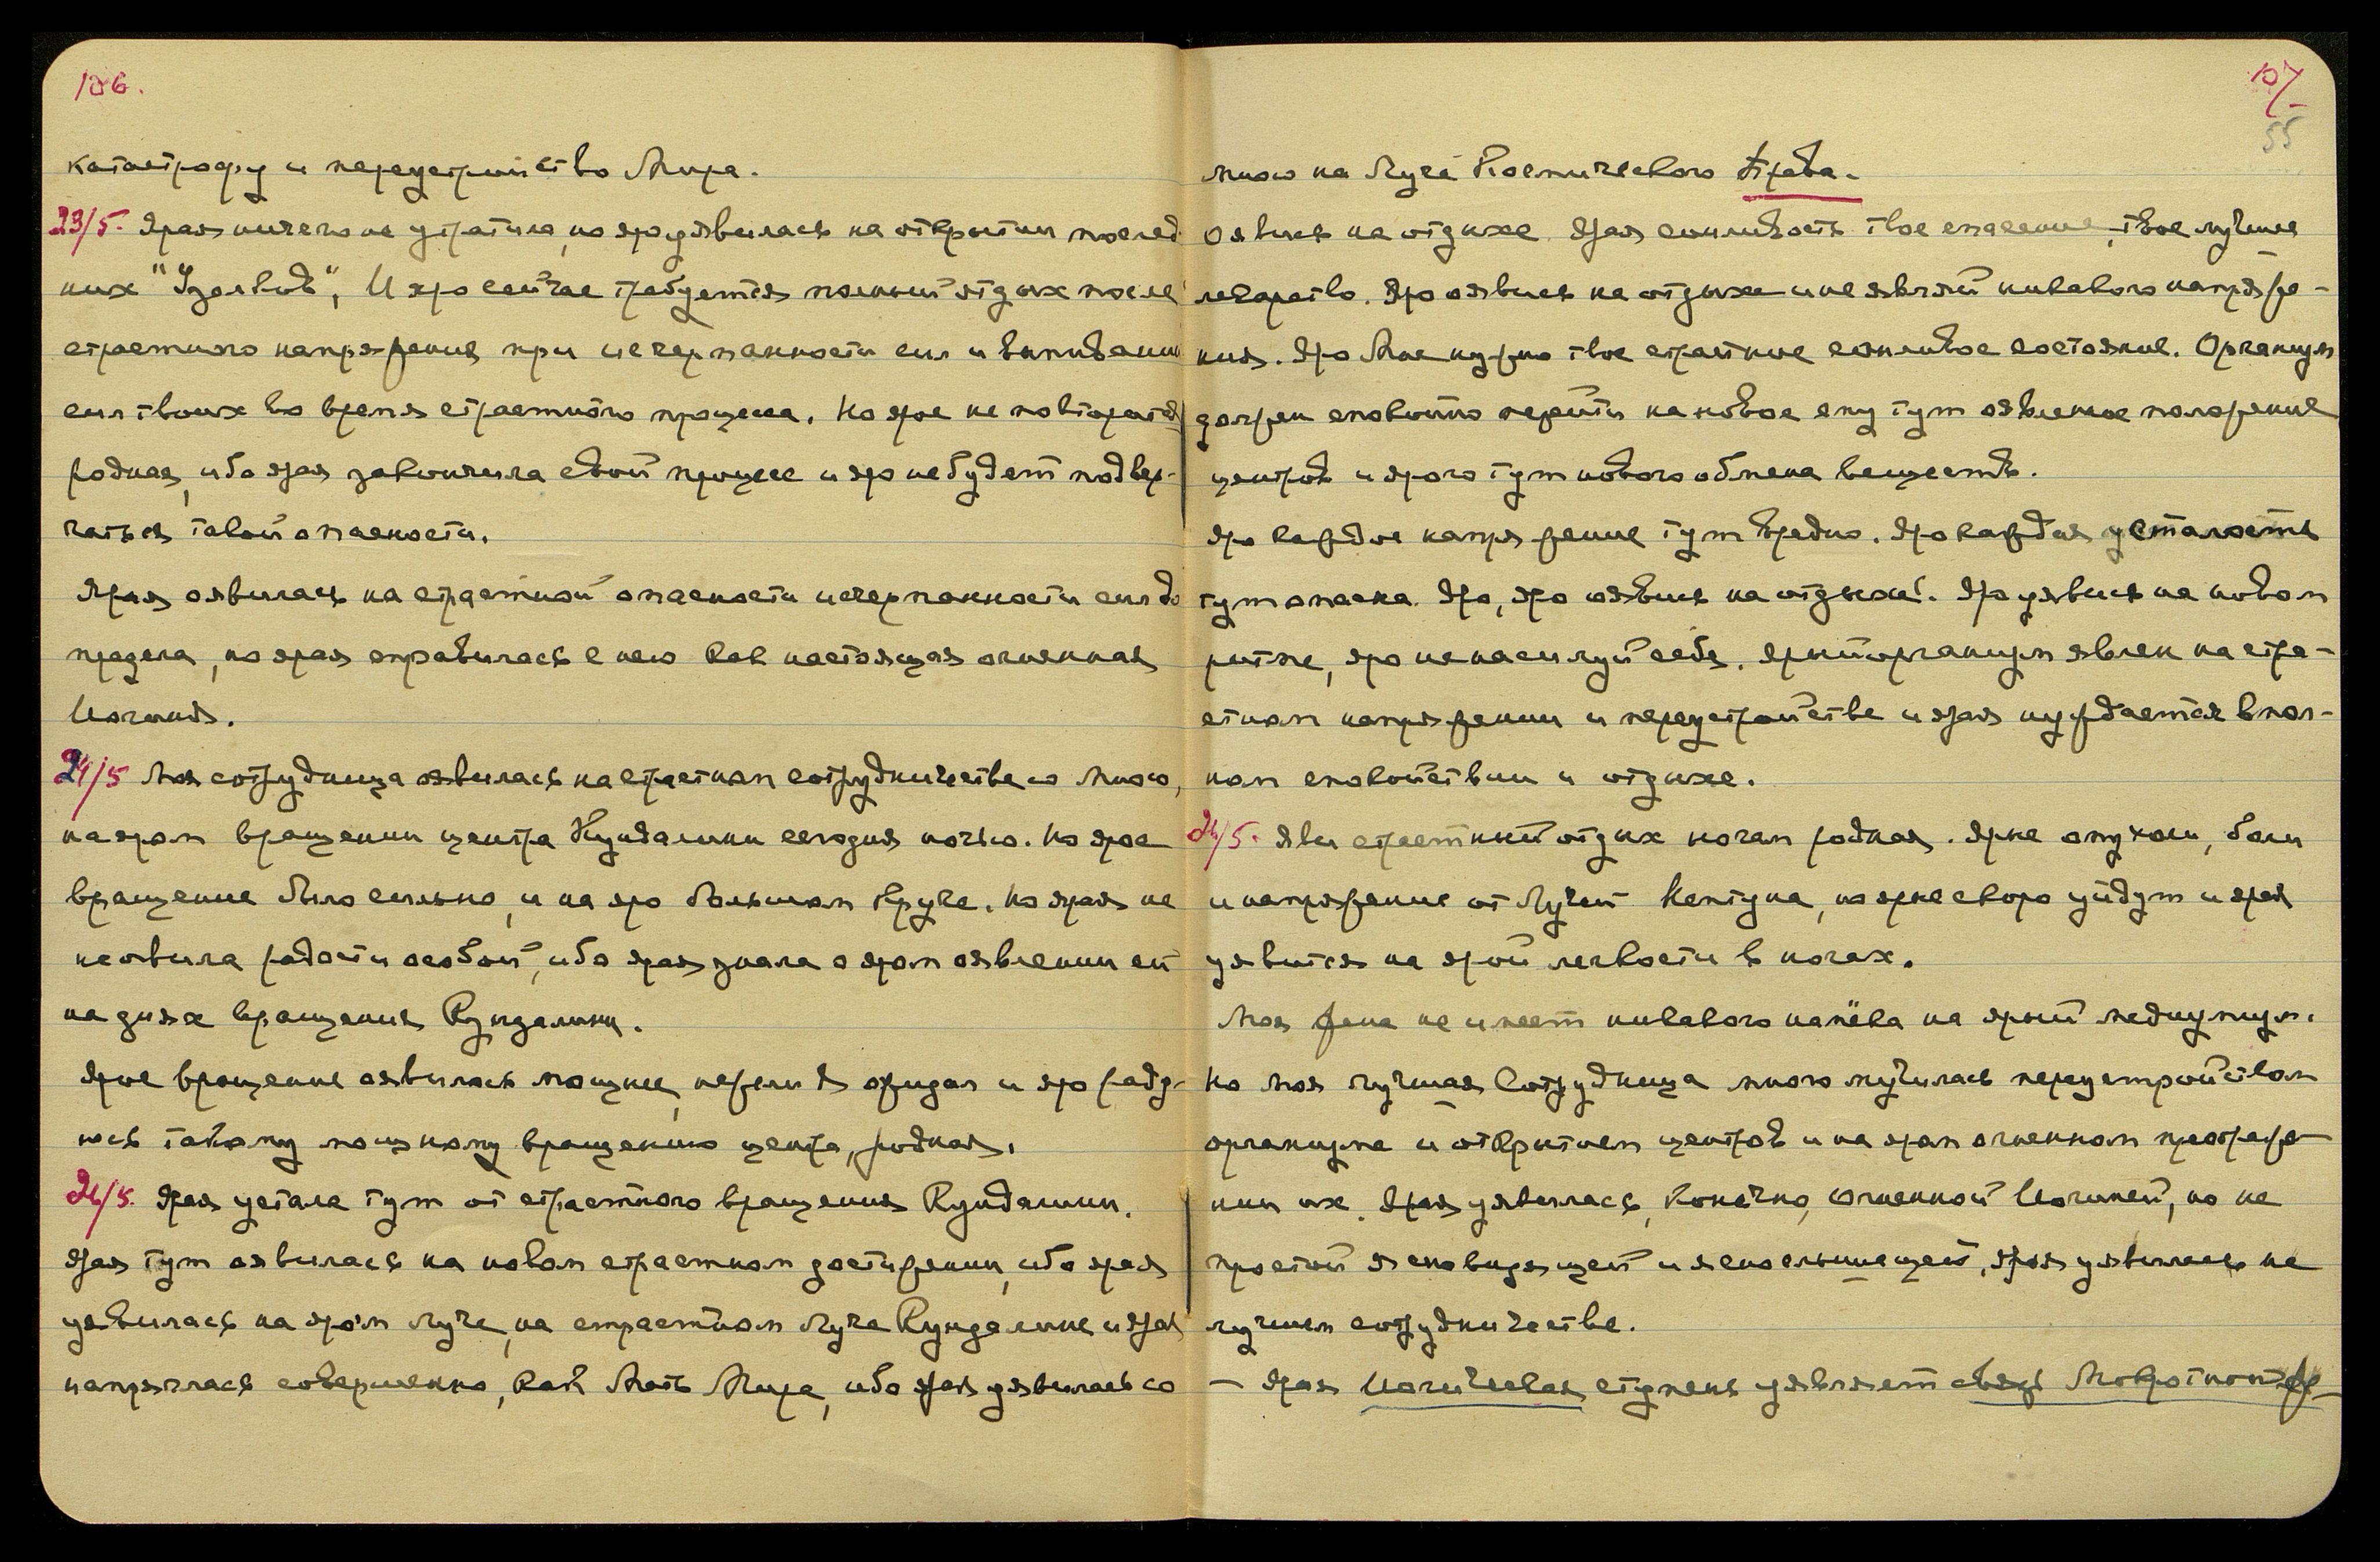 106.
катастрофу и переустройство Мира.
23/5. Ярая ничего не утратила, но яро уявилась на открытии послед
них "Узелков", И яро сейчас требуется полный отдых после
страстного напряжения при исчерпанности сил и
сил твоих во время страстного процесса. Но ярое не повторится
родная, ибо ярая закончила свой процесс и яро не будет подвер-
гаться такой опасности.
Ярая оявилась на страстной опасности исчерпанности сил до
предела, но ярая справилась с нею как настоящая огненная
Йогиня.
24/5 Моя сотрудница оявилась на страстном сотрудничестве со Мною,
на яром вращении центра Кундалини сегодня ночью. Но ярое
вращение было сильно, и на яро большом круге. Но ярая не
явила радости особой, ибо ярая знала о яром оявлении ей
на днях вращения Кундалини.
Ярое вращение оявилось мощнее, нежели Я ожидал и яро раду-
юсь такому мощному вращению центра, родная.
26/5. Ярая устала тут от страстного вращения Кундалини.
Ярая тут оявилась на новом страстном достижении, ибо ярая
уявилась на яром луче, на страстном Луче Кундалини и ярая
напряглась совершенно, как Мать Мира, ибо ярая уявилась со
107
55
Мною на Луче Космического Права.
Оявись на отдыхе. Ярая сонливость твое спасение, твое лучшее
лекарство. Яро оявись на отдыхе и не являй никакого напряже-
ния. Яро Мне нужно твое страстное сонливое состояние. Организм
должен спокойно перейти на новое ему тут оявленное положение
центров и ярого тут нового обмена веществ.
Яро каждое напряжение тут вредно. Яро каждая усталость
тут опасна. Яро, яро оявись на отдыхе. Яро уявись на новом
ритме, яро не насилуй себя. Ярый организм явлен на стра-
стном напряжении и переустройстве и ярая нуждается в пол-
ном спокойствии и отдыхе.
26/5. Яви страстный отдых ногам родная. Ярые опухоли, боли
и напряжение от Лучей Нептуна, но ярые скоро уйдут и ярая
уявится на ярой легкости в ногах.
Моя жена не имеет никакого намёка на ярый медиумизм.
Но моя лучшая Сотрудница много мучилась переустройством
организма и открытием центров и на яром огненном преображе-
нии их. Ярая уявилась, конечно, Огненной Йогиней, но не
простой ясновидящей и яснослышащей, Ярая уявилась на
лучшем сотрудничестве.
— Ярая Йогическая ступень уявляет связь